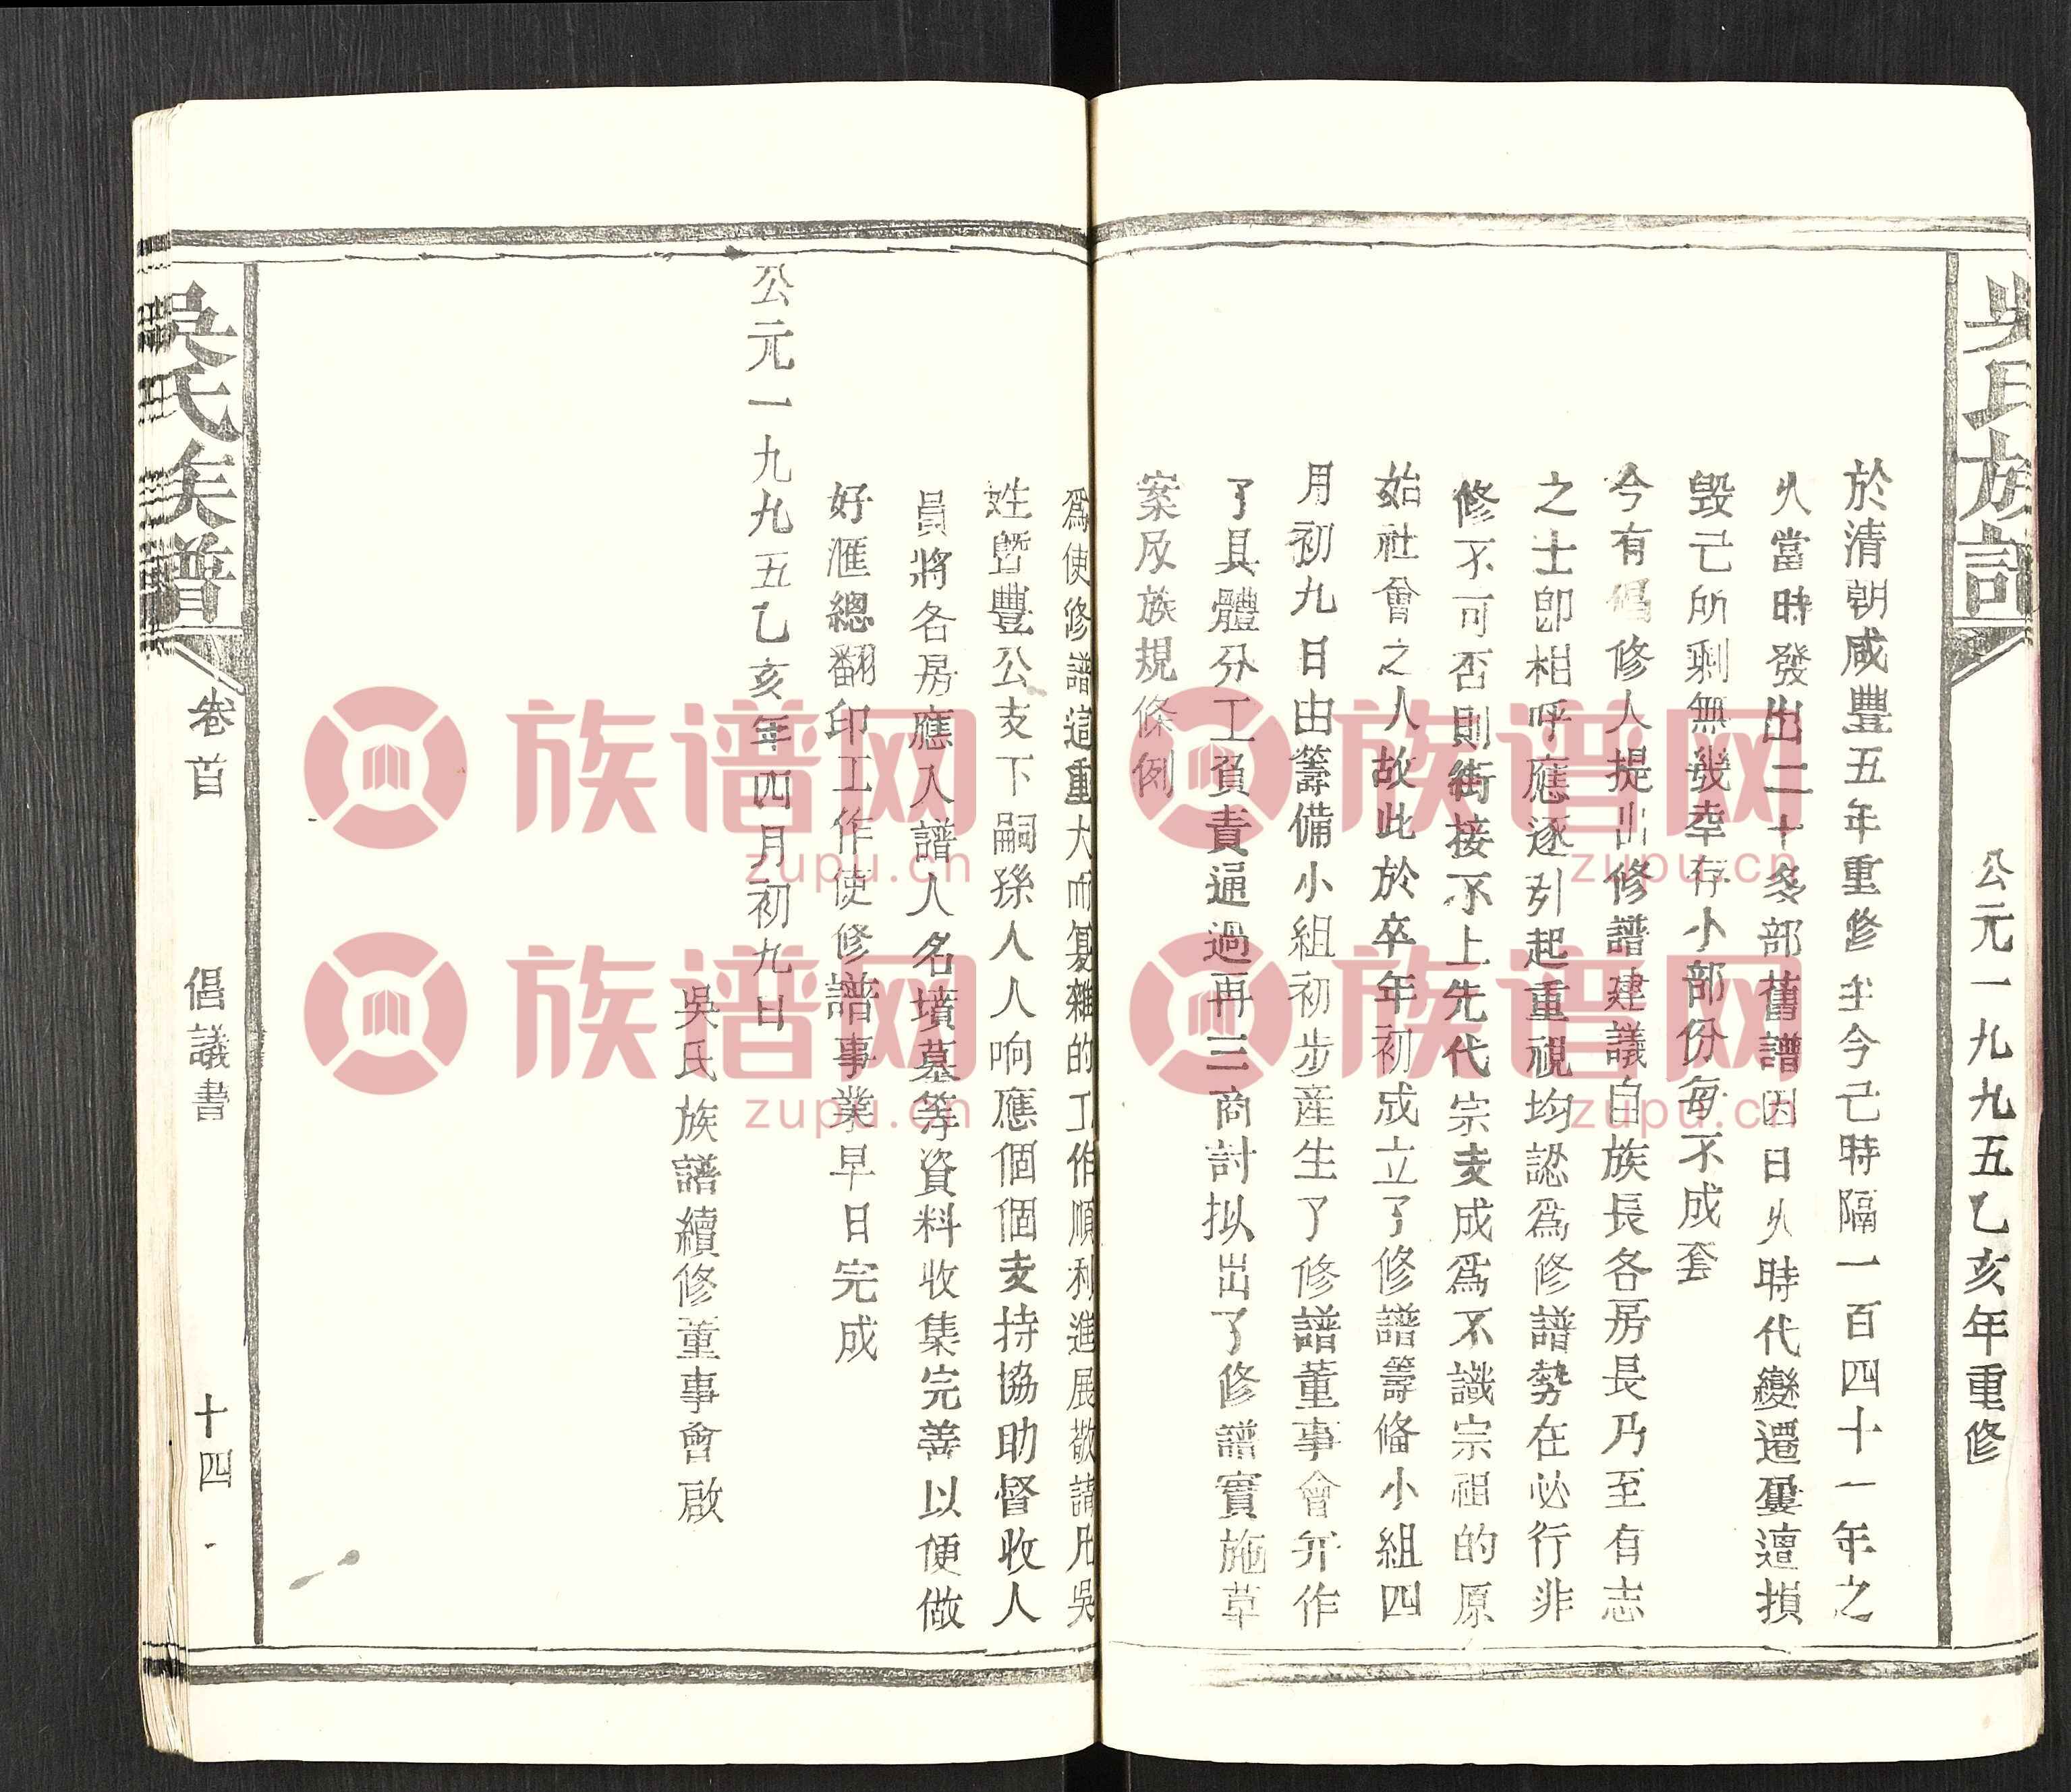 吳氏族譜
公元一九九五乙亥年重修
於清朝咸豐五年重修至今己時隔一百四十一年之
火當時發出二十多部舊譜因日火時代變遷屢遭損
毀己所剩無幾幸存小部份每不成套
今有倡修人提出修譜建議自族長各房長乃至有志
之士卽相呼應逐引起重視均認爲修譜勢在必行非
修不可否則銜接不上先代宗支成爲不識宗祖的原
始社會之人故此於卒年初成立了修譜籌俻小組四
月初九日由籌備小組初步産生了修譜董事會幷作
了具體分工負責通過再三商討拟出了修譜實施草
案及族規條例
爲使修譜這重大而复雜的工作順利進展敬請凡吳
姓暨豐公支下嗣孫人人响應個個支持協助督收人
員將各房應入譜人名墳墓等資料收集完善以便做
好滙總翻印工作使修譜事業早日完成
公元一九九五乙亥年四月初九日
吳氏族譜續修董事會啟
吳氏族譜
卷首
倡議書
十四
族谱网
zupu.cn
族谱网
zupu.cn
族谱网
zupu.cn
族谱网
zupu.cn